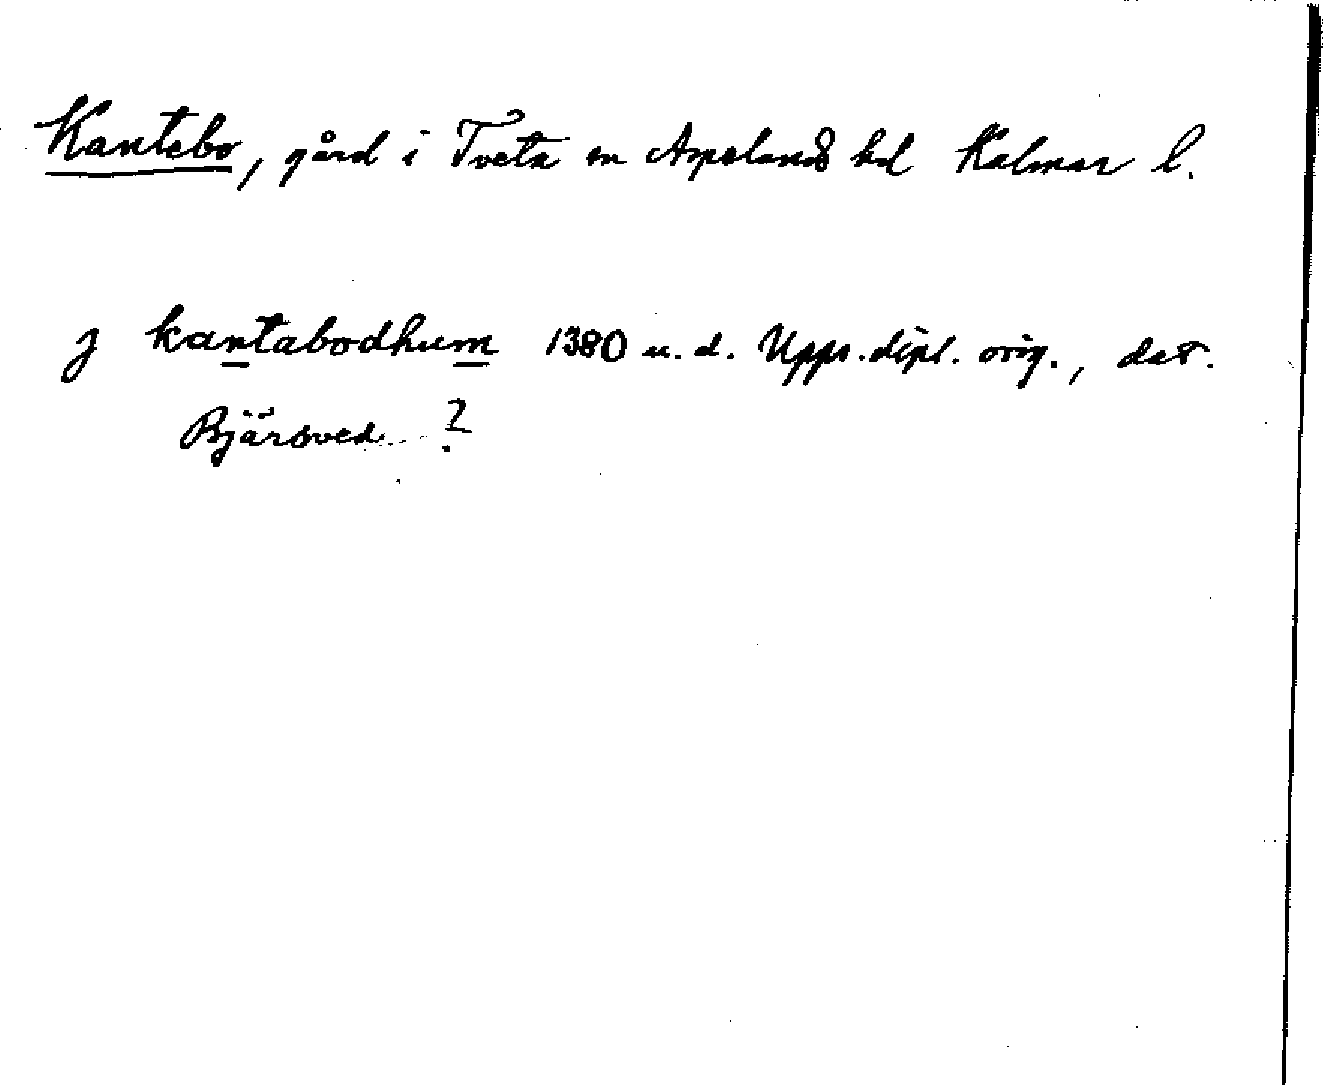 Kantebo, gård i Tveta sn Aspelands hd Kalmar l.
j kantabodhum 1380 u. d. Upps. dipl. orig., dat.
Bjärsved ?